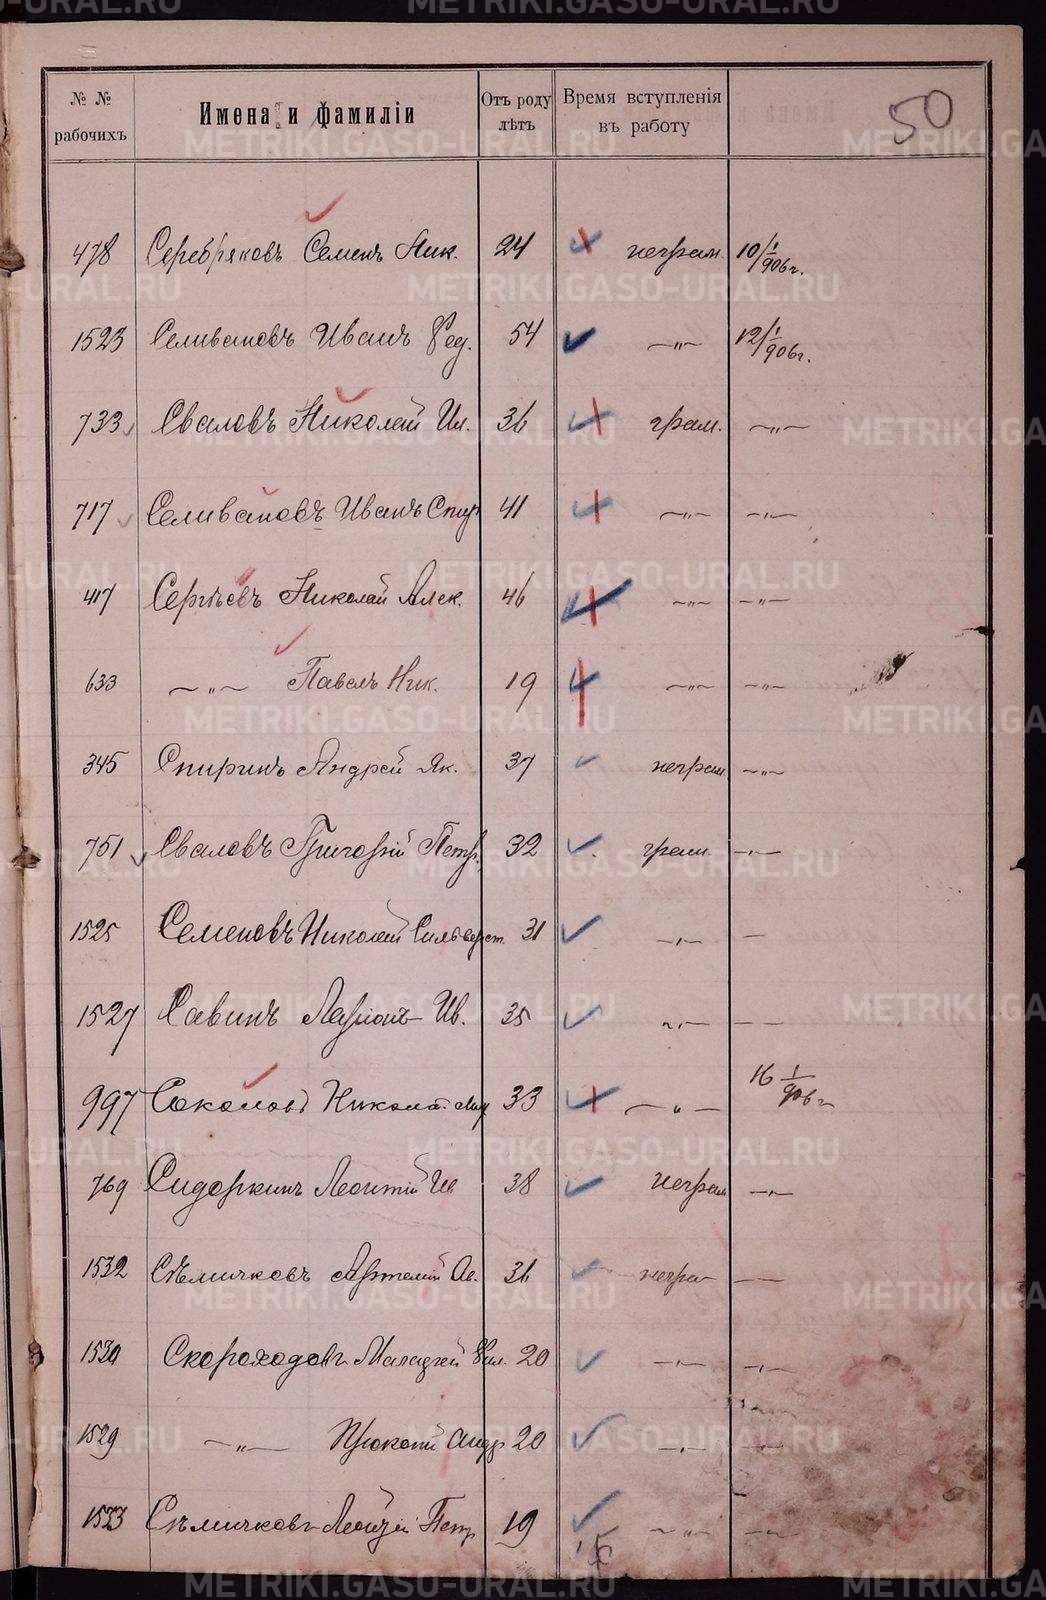 № № рабочихъ Имена и фамиліи Отъ роду лѣтъ Время вступленія въ работу 50
478 Серебряковъ Семенъ Ник. 24 неграм. 10/1 906 г.
1523 Селивановъ Иванъ Фед. 54 —„— 12/1 906 г.
733 Сваловъ Николай Ил. 36 грам. —„—
717 Селивановъ Иванъ Спир 41 —„— —„—
417 Сергѣевъ Николай Алек. 46 —„— —„—
633 —„— Павелъ Ник. 19 —„— —„—
345 Спиринъ Андрей Як. 37 неграм. —„—
751 Сваловъ Григорій Петр. 32 грам. —„—
1525 Семеновъ Николай Сильверст. 31 —„— —
1527 Савинъ Ларіонъ Ив. 35 —„— — —
997 Соколовъ Николай 33 — „ — 16 1/906 г
769 Сидоркинъ Леонтій 38 неграм —„—
1532 Сѣмичковъ Артемій Ав. 36 негра — —
1530 Скороходовъ Малахей Фил. 20 —„— —„—
1529 —„— Прокопій Андр 20 —„— —„—
1533 Сѣмичковъ Петр 19 —„— —„—
METRIKI.GASO-URAL.RU